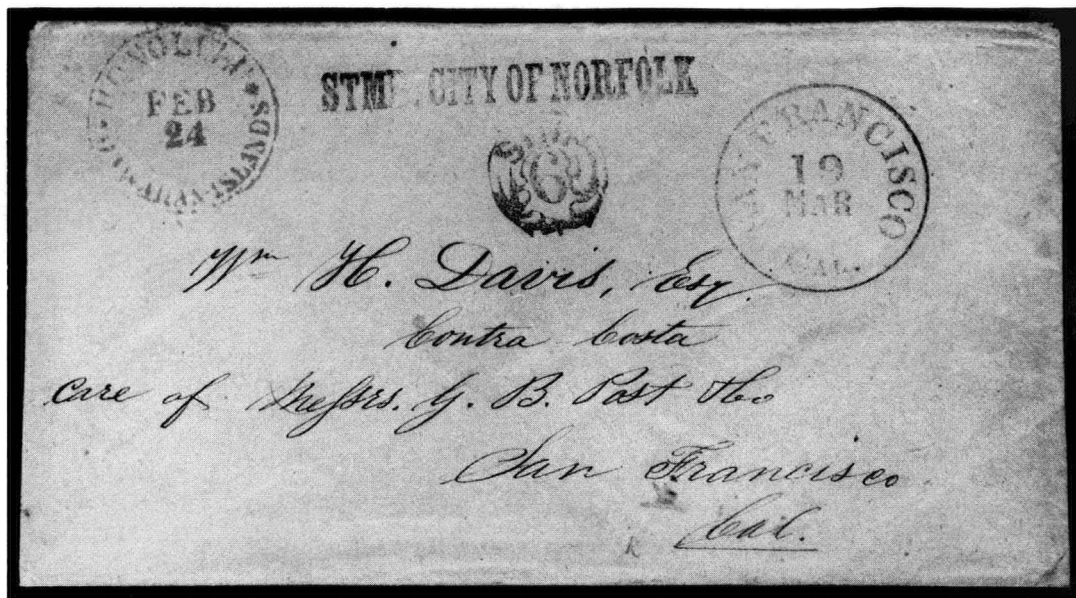 HONOLULU * HAWAIIAN-ISLANDS
FEB
24
STMR. CITY OF NORFOLK
SHIP
6
SAN FRANCISCO
19
MAR
CAL.
Wm H. Davis, Esq.
Contra Costa
Care of Messrs. G. B. Post & Co
San Francisco
Cal.